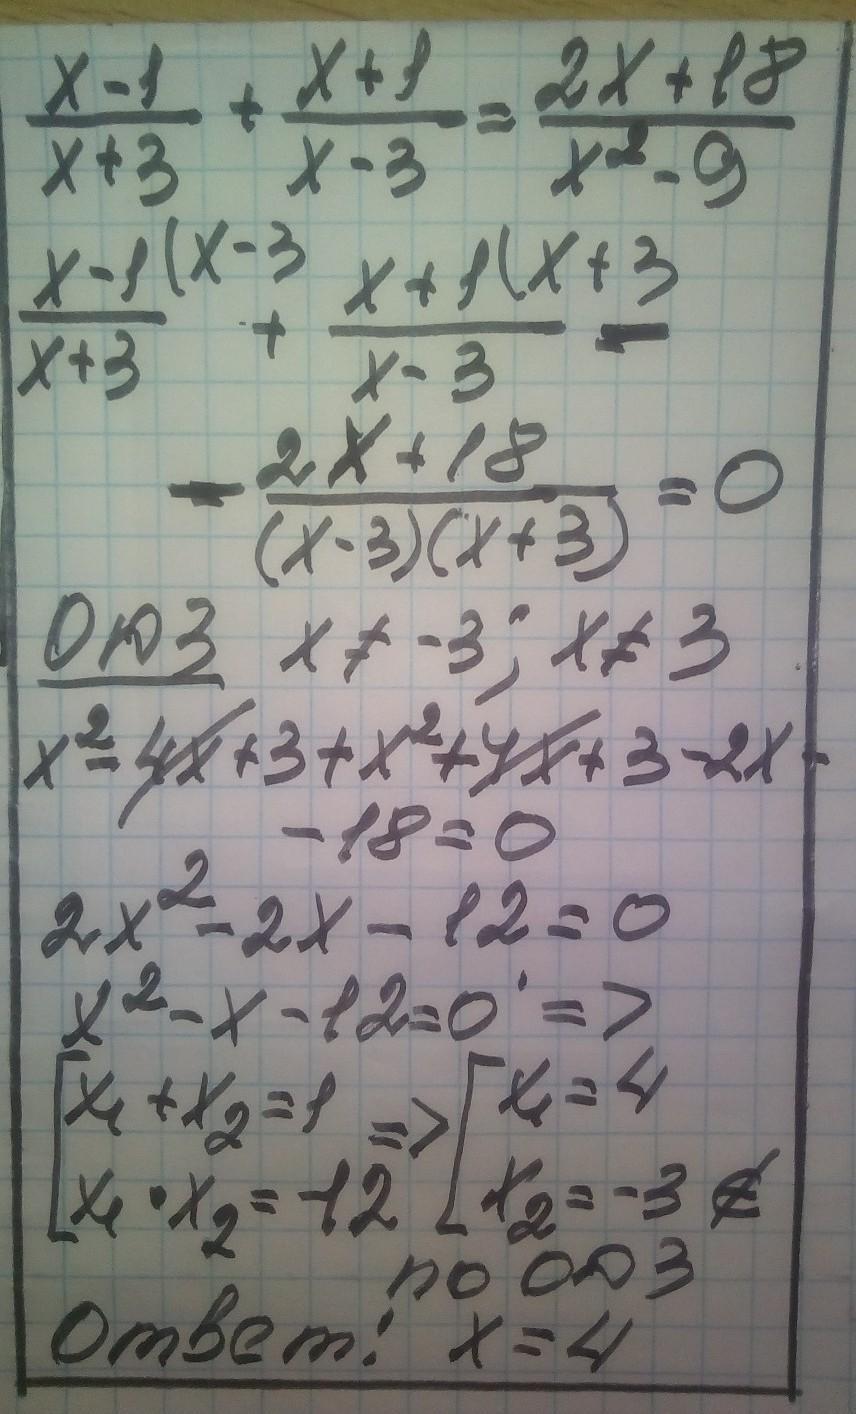 (x-1)/(x+3) + (x+1)/(x-3) = (2x+18)/(x²-9)
x-1(x-3/x+3 + x+1(x+3/x-3 -
- (2x+18)/((x-3)(x+3)) = 0
ОДЗ x ≠ -3; x ≠ 3
x²-4x+3+x²+4x+3-2x-
-18=0
2x²-2x-12=0
x²-x-12=0 =>
[x₁+x₂=1 => [x₁=4
[x₁·x₂=-12 [x₂=-3 ∉
по ОДЗ
Ответ: x=4